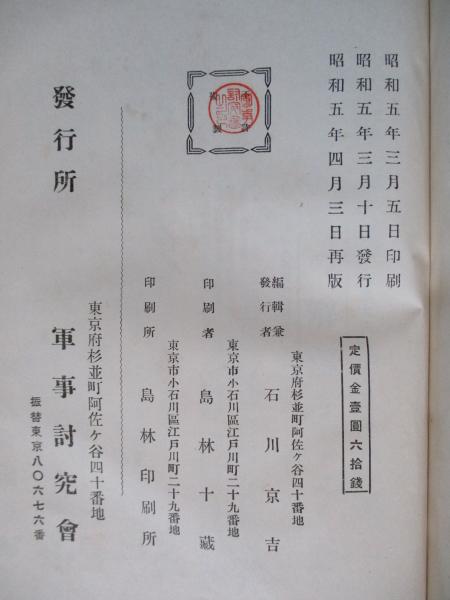 昭和五年三月五日印刷
昭和五年三月十日發行
昭和五年四月三日再版
定價金壹圓六拾錢
東京府杉並町阿佐ケ谷四十番地
編輯兼
發行者 石川京吉
東京市小石川區江戸川町二十九番地
印刷者 島林十藏
東京市小石川區江戸川町二十九番地
印刷所 島林印刷所
東京府杉並町阿佐ケ谷四十番地
發行所 軍事討究會
振替東京八〇六七六番